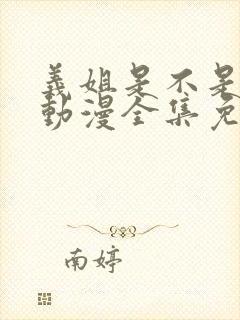 義姐是不是
動漫全集免
南婷